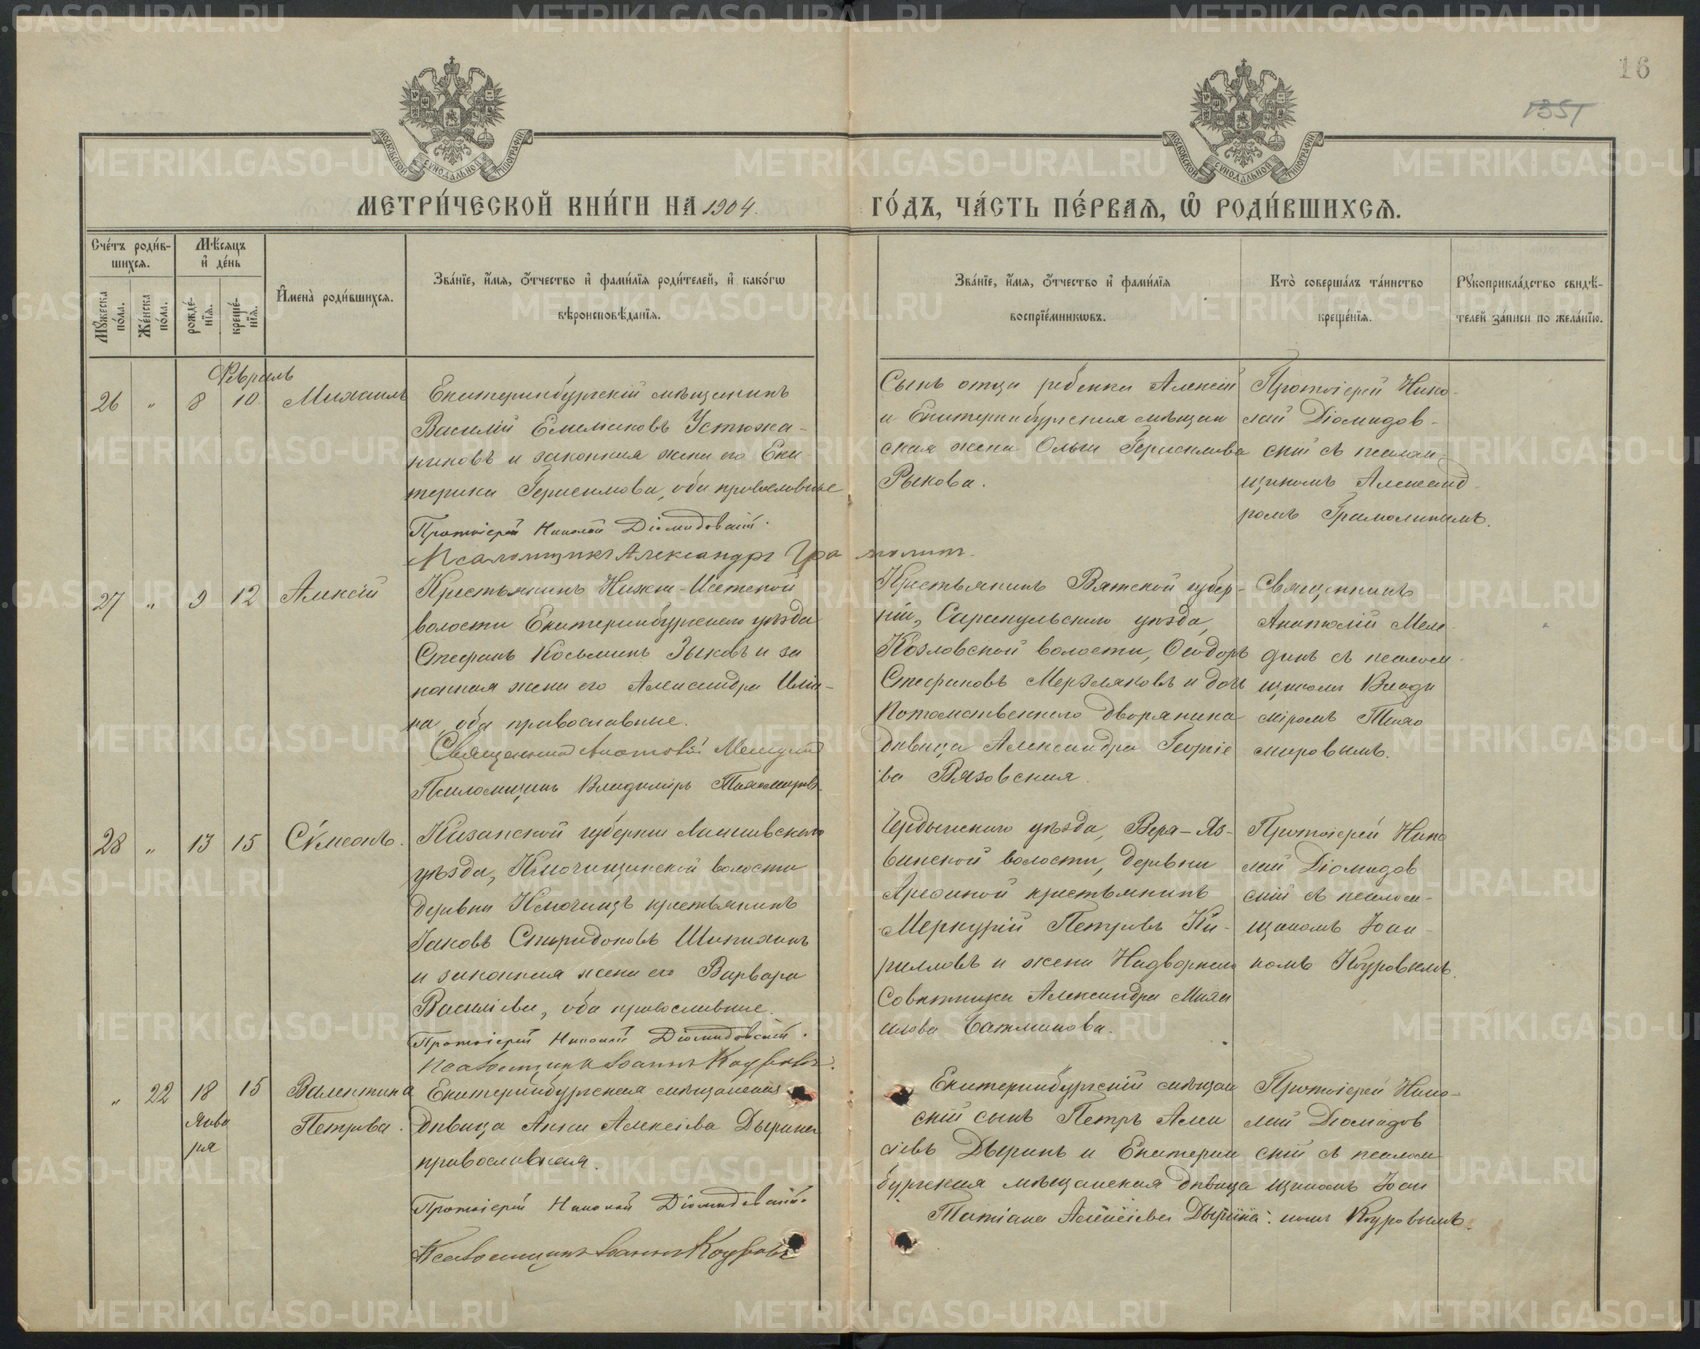 16
1351
МЕТРИ́ЧЕСКОЙ КНИ́ГИ НА 1904
ГО́ДЪ, ЧА́СТЬ ПЕ́РВАЯ, Ѡ РОДИ́ВШИХСЯ.
Сче́тъ роди́в-
шихся.
Мѣ́сяцъ
и де́нь
Мꙋ́жеска
по́ла.
Же́нска
по́ла.
рожде́-
нїя.
креще́-
нїя.
И҆мена̀ роди́вшихся.
Зва́нїе, и҆́мя, ѻ҆́тчество и҆ фами́лїя роди́телей, и҆ како́гѡ
вѣроисповѣ́данїя.
Зва́нїе, и҆́мя, ѻ҆́тчество и҆ фами́лїя
воспрїе́мникѡвъ.
Кто̀ соверша́лъ та́инство
креще́нїя.
Рꙋкоприкла́дство свидѣ́-
телей за́писи по жела́нїю.
Февраль
26 „ 8 10 Михаилъ
Екатеринбургскій мѣщанинъ
Василій Емельяновъ Устюжа-
ниновъ и законная жена его Ека
терина Герасимова, оба православные
Протоіерей Николай Діомидовскій.
Псаломщикъ Александръ Грамолинъ.
Сынъ отца ребенка Алексій
и Екатеринбургская мѣщан
ская жена Ольга Герасимова
Рыкова.
Протоіерей Нико-
лай Діомидов-
скій съ псалом
щикомъ Александ
ромъ Грамолинымъ.
27 „ 9 12 Алексій
Крестьянинъ Нижне-Исетской
волости Екатеринбургскаго уѣзда
Стефанъ Косьминъ Зыковъ и за
конная жена его Александра Ильи-
на, оба православные.
Священникъ Анатолій
Псаломщикъ Владиміръ Тихомировъ
Крестьянинъ Вятской губер-
ніи, Сарапульскаго уѣзда,
Козловской волости, Ѳеодоръ
Стефановъ Мерзляковъ и дочь
потомственнаго дворянина
дѣвица Александра Георгіе
ва Вязовская.
Священникъ
Анатолій
съ псалом
щикомъ Влади
міромъ Тихо
мировымъ.
28 „ 13 15 Сѵмеонъ.
Казанской губерніи Лаишевскаго
уѣзда, Ключищинской волости
деревни Ключищъ крестьянинъ
Іаковъ Спиридоновъ Шипихинъ
и законная жена его Варвара
Васильева, оба православные.
Протоіерей Николай Діомидовскій.
Псаломщикъ Іоаннъ Коуровъ.
Чердынскаго уѣзда, Верх-Яз-
винской волости, деревни
крестьянинъ
Меркурій Петровъ Ки-
рилловъ и жена Надворнаго
Совѣтника Александра Михаи
лова
Протоіерей Нико
лай Діомидов
скій съ псалом-
щикомъ Іоан-
номъ Коуровымъ.
„ 22 18 15 Валентина
Янва
ря
Петрова.
Екатеринбургская мѣщанская
дѣвица Анна Алексіева Дырина
православная.
Протоіерей Николай Діомидовскій.
Псаломщикъ Іоаннъ Коуровъ
Екатеринбургскій мѣщан
скій сынъ Петръ Алек
сіевъ Дыринъ и Екатерин
бургская мѣщанская дѣвица
Татіана Алексіева Дырина.
Протоіерей Нико-
лай Діомидов
скій съ псалом
щикомъ Іоан
номъ Коуровымъ.